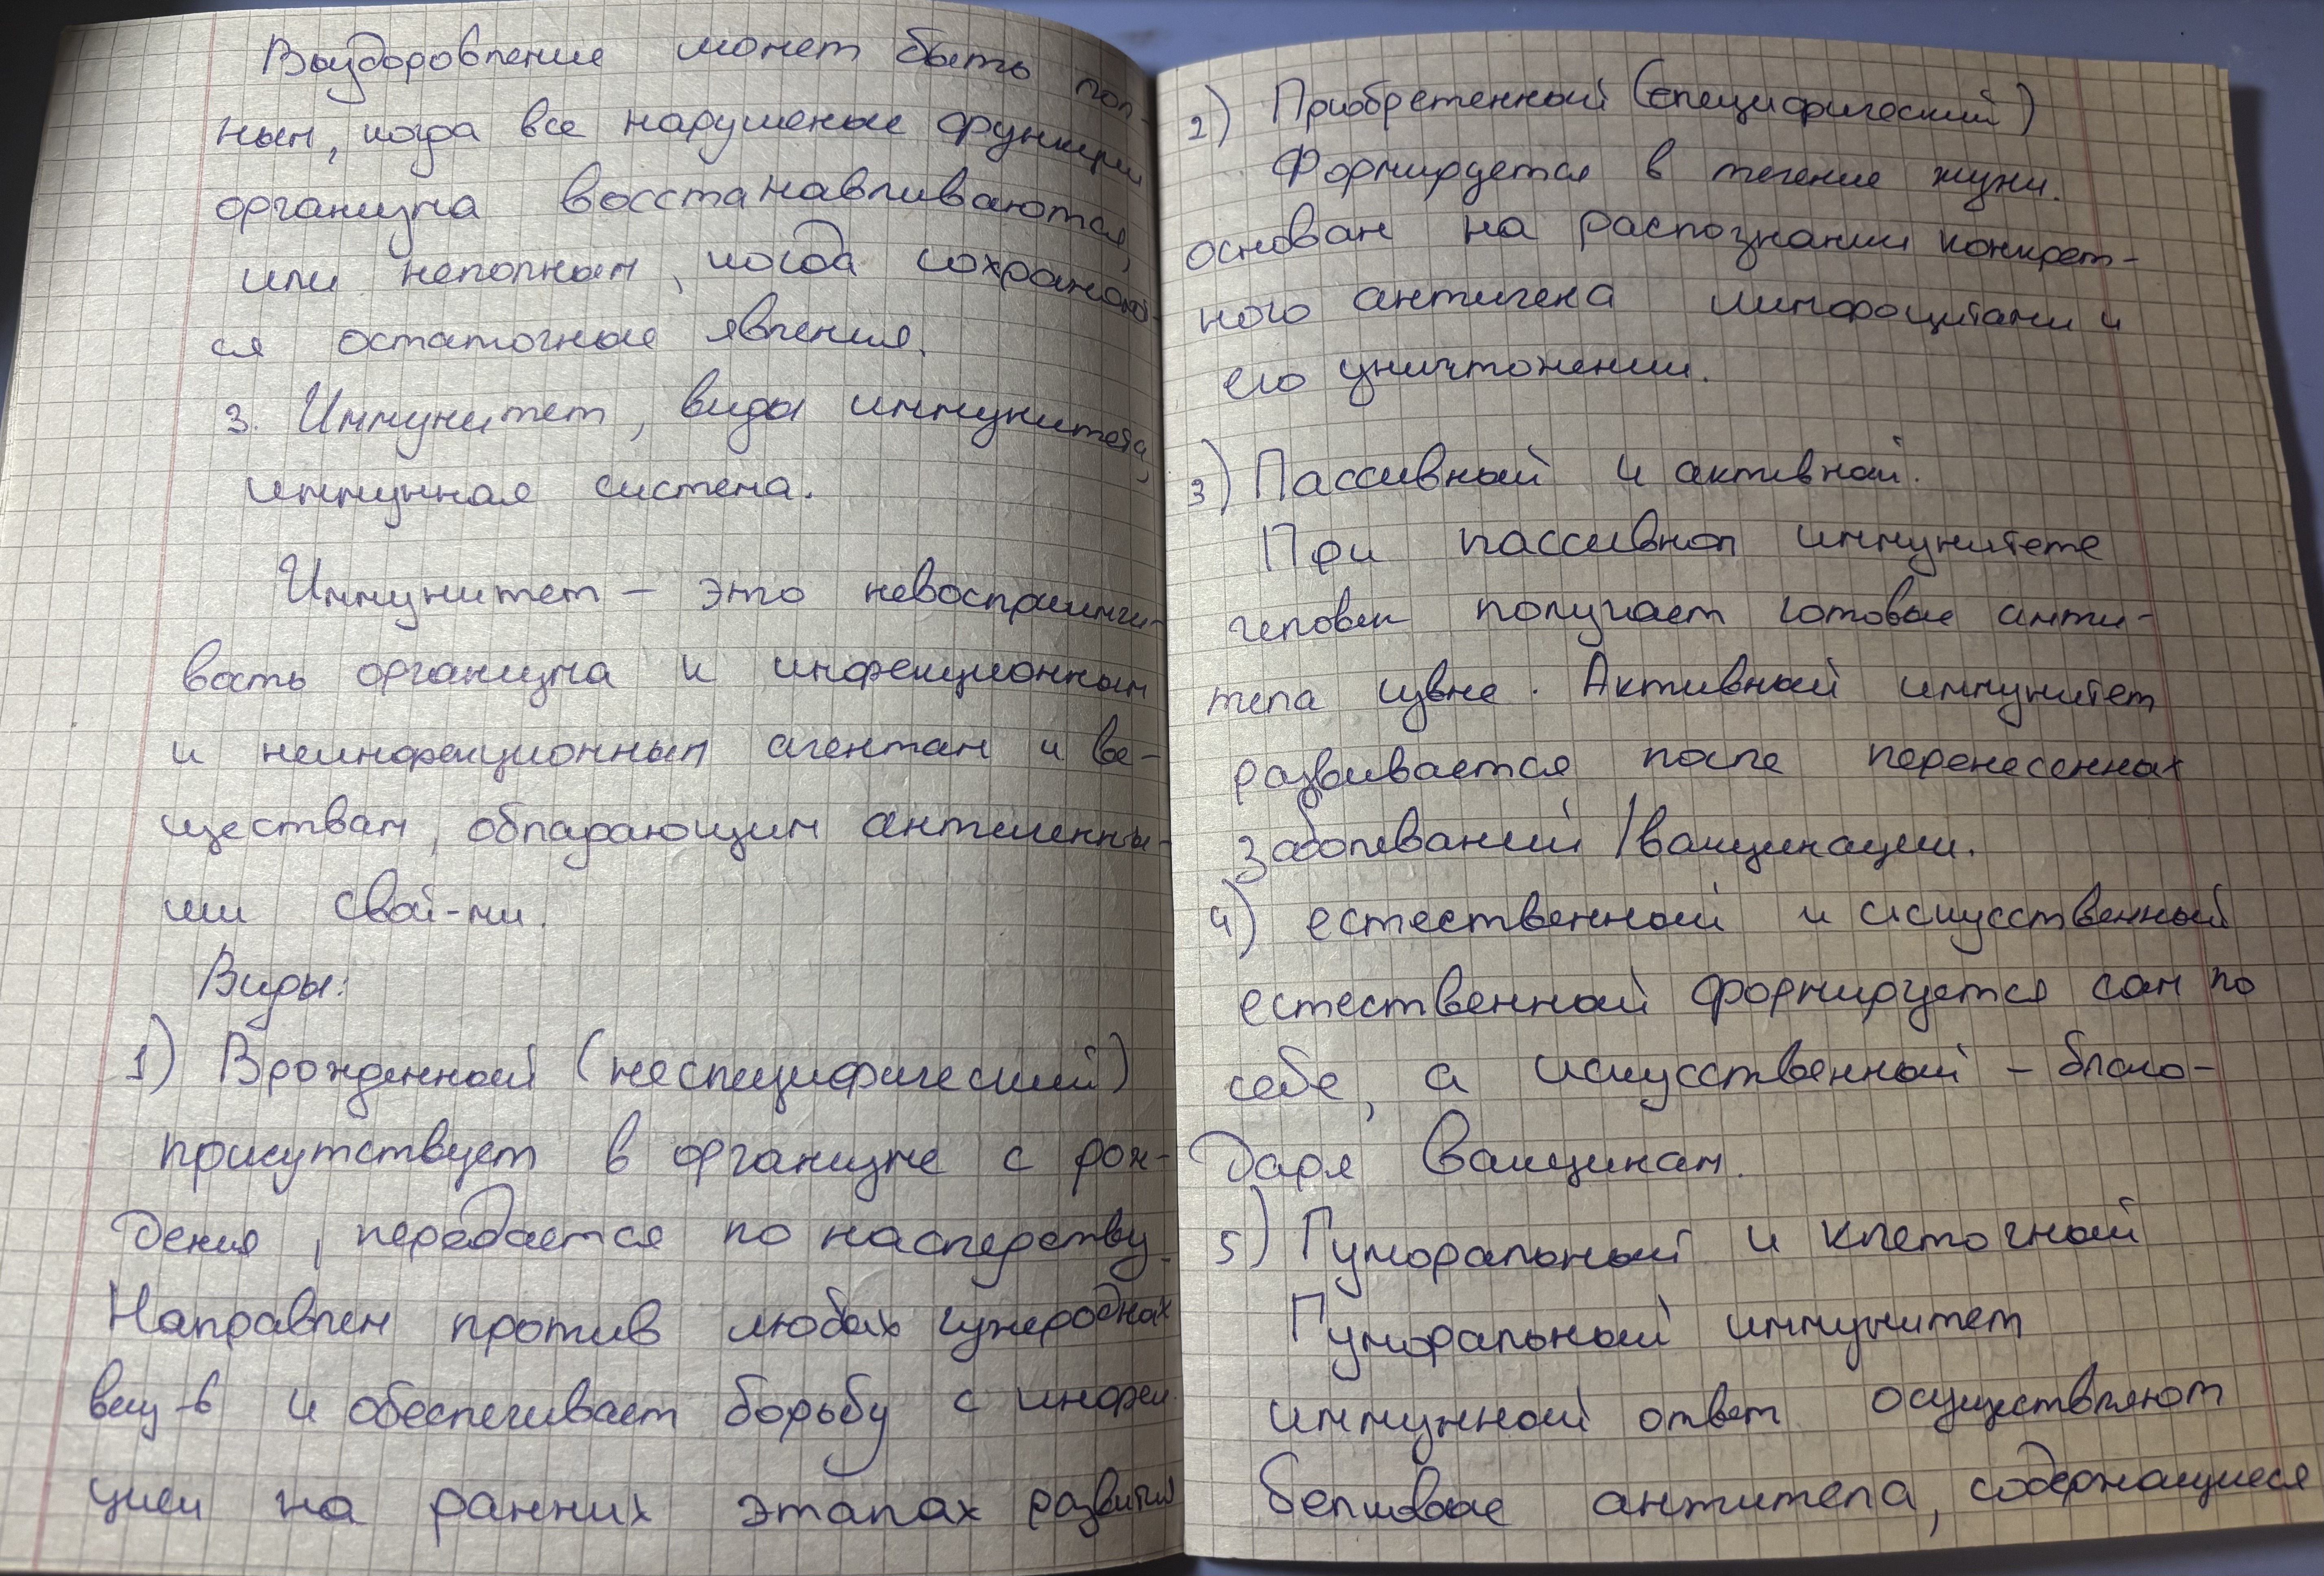 Выздоровление может быть пол-
ным, когда все нарушеные функции
организма восстанавливаются,
или неполным, когда сохраняют-
ся остаточные явления.
3. Иммунитет, виды иммунитета,
иммунная система.
Иммунитет – это невосприимчи-
вость организма к инфекционным
и неинфекционным агентам и ве-
ществам, обладающим антигенны-
ми свой-ми.
Виды:
1) Врожденный (неспецифический)
присутствует в организме с рож-
дения, передается по наследству.
Направлен против любых чужеродных
вещ-в и обеспечивает борьбу с инфек-
цией на ранних этапах развития
2) Приобретенный (специфический)
Формируется в течение жизни.
основан на распознании конкрет-
ного антигена лимфоцитами и
его уничтожении.
3) Пассивный и активный.
При пассивном иммунитете
человек получает готовые анти-
тела извне. Активный иммунитет
развивается после перенесенных
заболеваний / вакцинации.
4) естественный и искусственный
естественный формируется сам по
себе, а искусственный – благо-
даря вакцинам.
5) Гуморальный и клеточный
Гуморальный иммунитет
иммунный ответ осуществляют
белковые антитела, содержащиеся